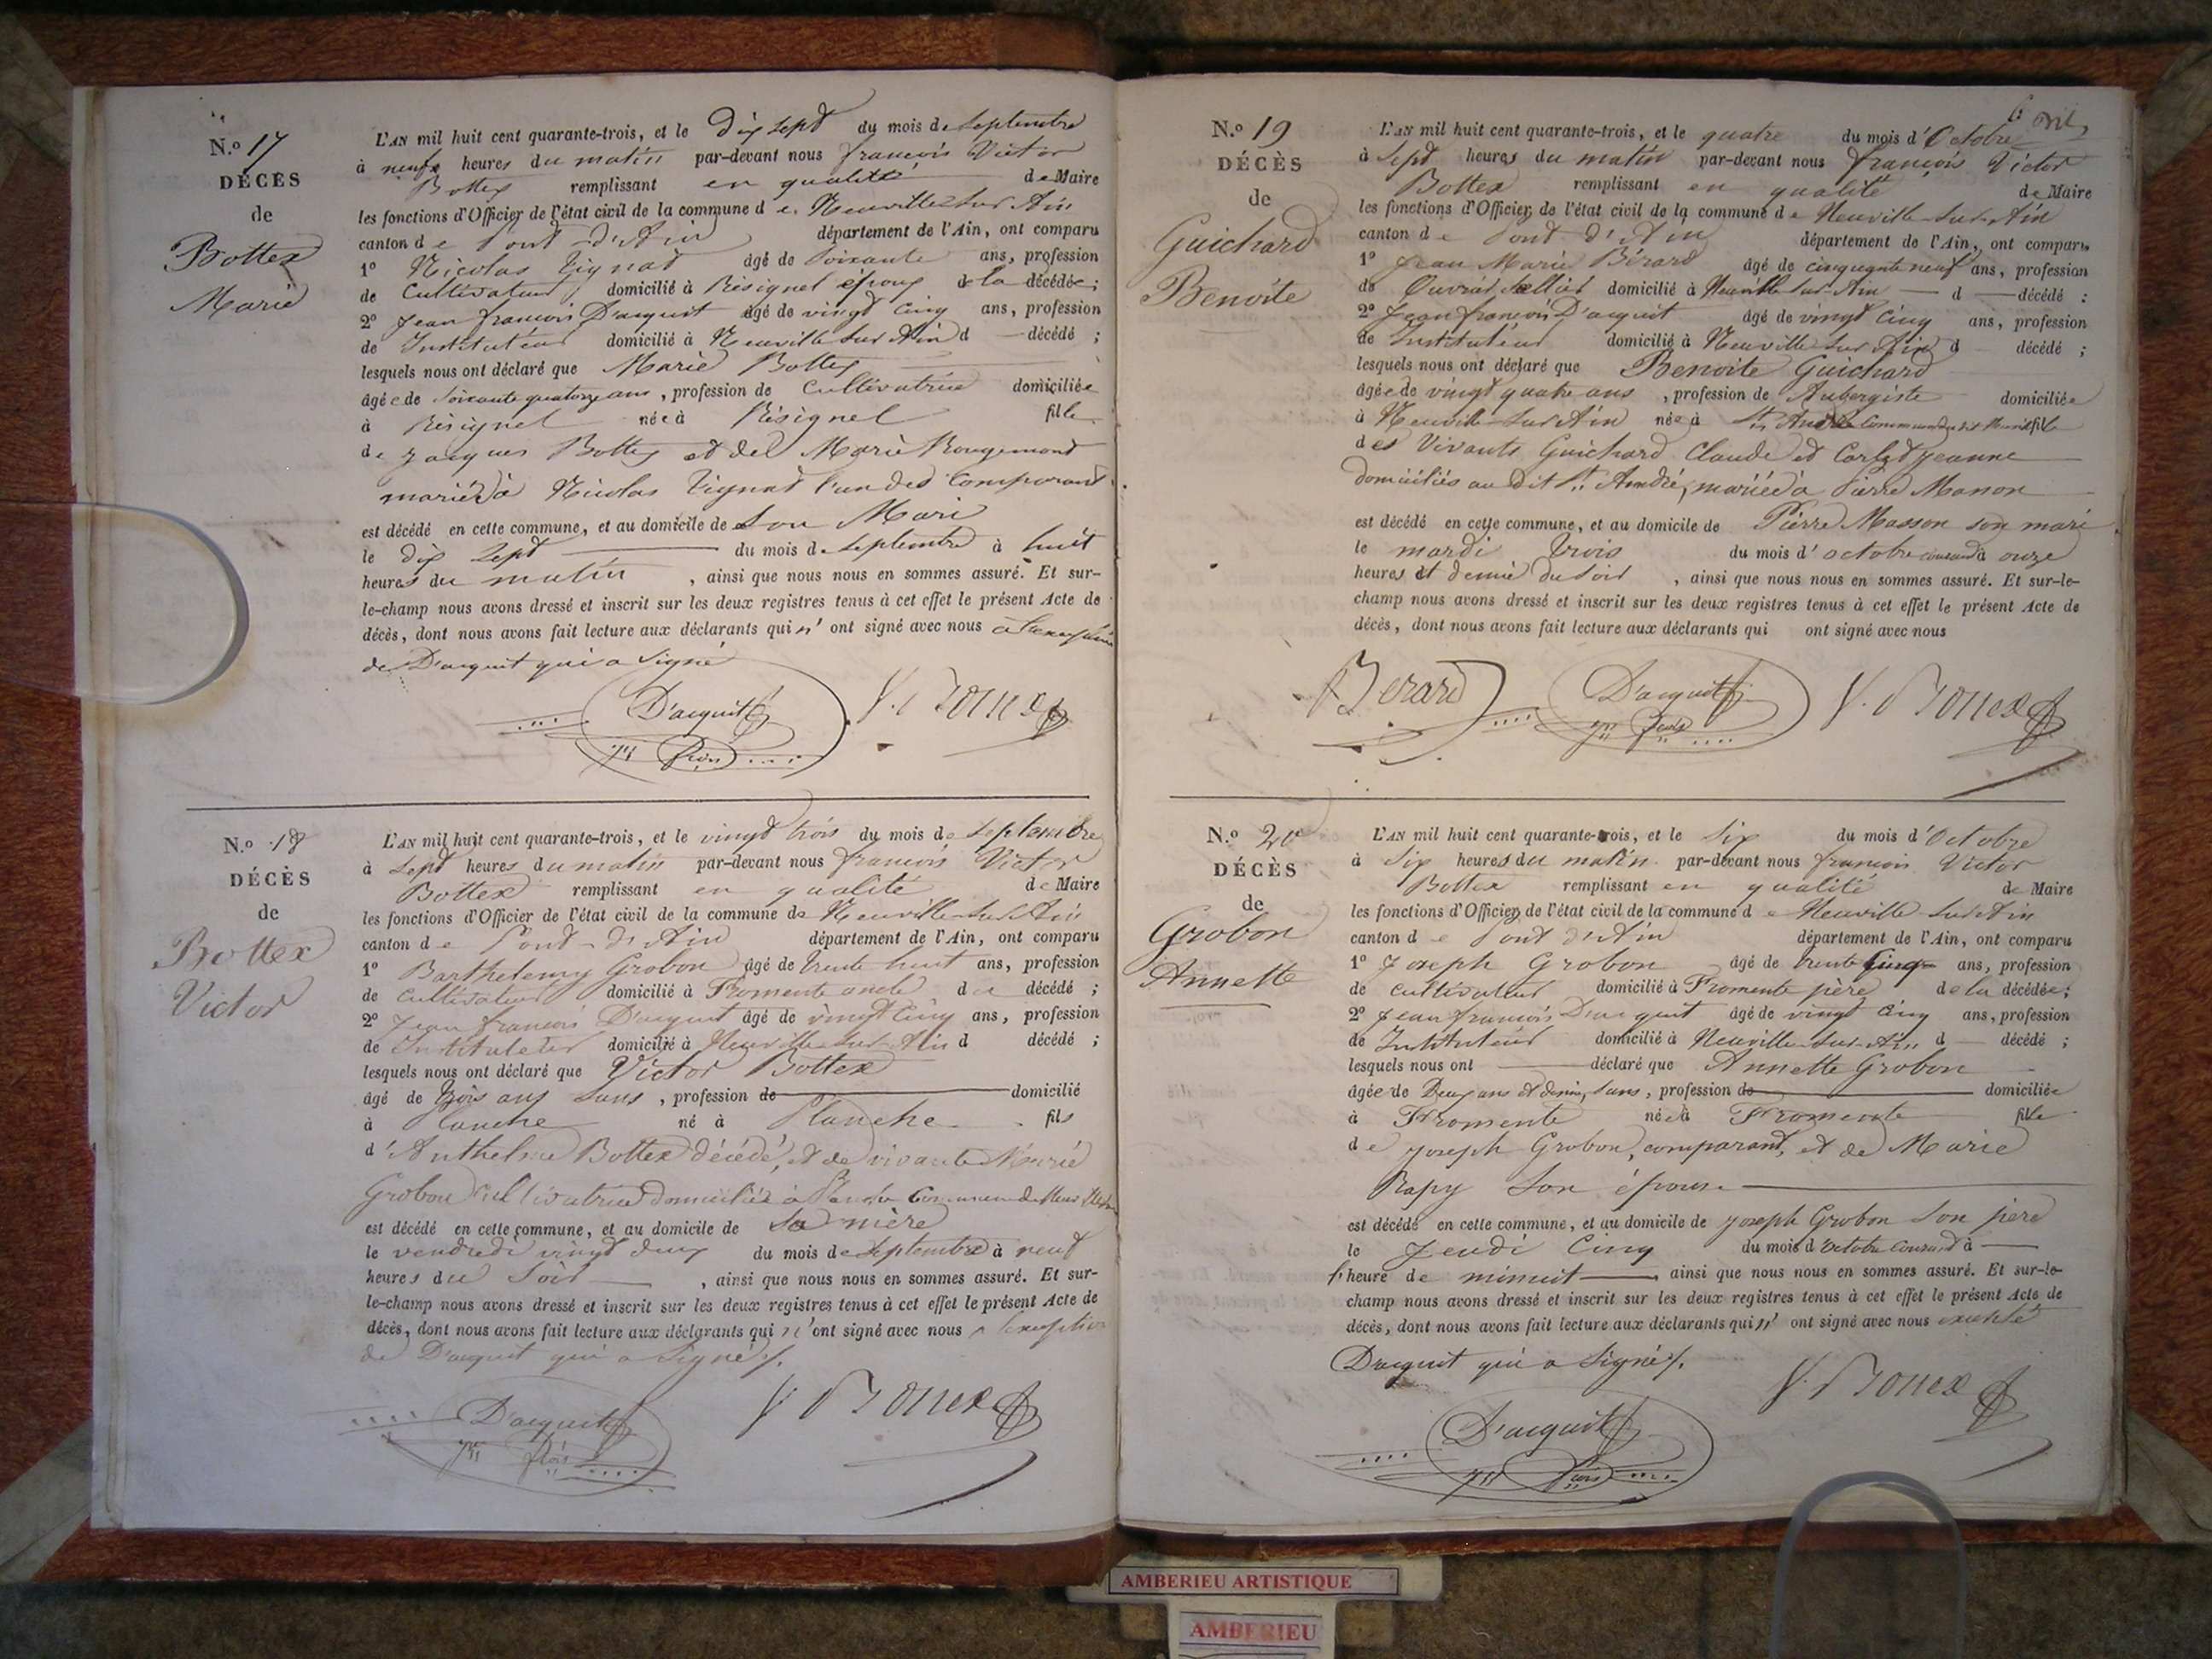 N.o 17
DÉCÈS
de
Bottex
Marie
L'AN mil huit cent quarante-trois, et le dix sept du mois de Septembre
à neuf heures du matin par-devant nous françois Victor
Bottex remplissant en qualité de Maire
les fonctions d'Officier de l'état civil de la commune de Neuville sur Ain
canton de Pont-d'Ain département de l'Ain, ont comparu
1o Nicolas Tignat âgé de Soixante ans, profession
de Cultivateur domicilié à Résignel époux de la décédée;
2o Jean françois D'acquit âgé de vingt Cinq ans, profession
de Instituteur domicilié à Neuville sur Ain d décédé;
lesquels nous ont déclaré que Marie Bottex
âgée de Soixante quatorze ans, profession de Cultivatrice domiciliée
à Résignel née à Résignel fille
de Jacques Bottex et de Marie Rougemont
mariée à Nicolas Tignat l'un des Comparant
est décédé en cette commune, et au domicile de Son Mari
le dix Sept du mois de Septembre à huit
heures du matin, ainsi que nous nous en sommes assuré. Et sur-
le-champ nous avons dressé et inscrit sur les deux registres tenus à cet effet le présent Acte de
décès, dont nous avons fait lecture aux déclarants qui n'ont signé avec nous
de D'acquit qui a Signé
D'acquit
V. Bottex
N.o 18
DÉCÈS
de
Bottex
Victor
L'AN mil huit cent quarante-trois, et le vingt trois du mois de Septembre
à Sept heures du matin par-devant nous françois Victor
Bottex remplissant en qualité de Maire
les fonctions d'Officier de l'état civil de la commune de Neuville sur Ain
canton de Pont-d'Ain département de l'Ain, ont comparu
1o Barthelemy Grobon âgé de trente huit ans, profession
de Cultivateur domicilié à Fromente oncle du décédé;
2o Jean françois D'acquit âgé de vingt Cinq ans, profession
de Instituteur domicilié à Neuville sur Ain d décédé;
lesquels nous ont déclaré que Victor Bottex
âgé de Trois ans Sans, profession de domicilié
à Planche né à Planche fils
d'Anthelme Bottex décédé, et de vivante Marie
Grobon Cultivatrice domiciliée à Planche Commune de
est décédé en cette commune, et au domicile de Sa mère
le vendredi vingt deux du mois de Septembre à neuf
heures du Soir, ainsi que nous nous en sommes assuré. Et sur-
le-champ nous avons dressé et inscrit sur les deux registres tenus à cet effet le présent Acte de
décès, dont nous avons fait lecture aux déclarants qui n'ont signé avec nous a l'exception
de D'acquit qui a Signé/.
D'acquit
V. Bottex
N.o 19
DÉCÈS
de
Guichard
Benoite
L'AN mil huit cent quarante-trois, et le quatre du mois d'Octobre
à Sept heures du matin par-devant nous françois Victor
Bottex remplissant en qualité de Maire
les fonctions d'Officier de l'état civil de la commune de Neuville-Sur-Ain
canton de Pont d'Ain département de l'Ain, ont comparu
1o Jean Marie Bérard âgé de cinquante neuf ans, profession
de Ouvrier Sellier domicilié à Neuville Sur-Ain d décédé:
2o Jean françois D'acquit âgé de vingt Cinq ans, profession
de Instituteur domicilié à Neuville Sur Ain d décédé;
lesquels nous ont déclaré que Benoite Guichard
âgée de vingt quatre ans, profession de Aubergiste domiciliée
à Neuville Sur Ain née à St André fille
des Vivants Guichard Claude et Carlet Jeanne
domiciliés au dit St André, mariée à Pierre Masson
est décédé en cette commune, et au domicile de Pierre Masson son mari
le mardi trois du mois d'octobre courant à onze
heures et demie du Soir, ainsi que nous nous en sommes assuré. Et sur-le-
champ nous avons dressé et inscrit sur les deux registres tenus à cet effet le présent Acte de
décès, dont nous avons fait lecture aux déclarants qui ont signé avec nous
Berard
D'acquit
V. Bottex
N.o 20
DÉCÈS
de
Grobon
Annette
L'AN mil huit cent quarante-trois, et le Six du mois d'Octobre
à Six heures du matin par-devant nous françois Victor
Bottex remplissant en qualité de Maire
les fonctions d'Officier de l'état civil de la commune de Neuville Sur Ain
canton de Pont d'Ain département de l'Ain, ont comparu
1o Joseph Grobon âgé de trente Cinq ans, profession
de Cultivateur domicilié à Fromente père de la décédée;
2o Jean françois D'acquit âgé de vingt Cinq ans, profession
de Instituteur domicilié à Neuville-Sur-Ain d décédé;
lesquels nous ont déclaré que Annette Grobon
âgée de Deux ans et demi, Sans, profession de domiciliée
à Fromente née à Fromente fille
de Joseph Grobon, comparant, et de Marie
Rapy Son épouse
est décédé en cette commune, et au domicile de Joseph Grobon Son père
le Jeudi Cinq du mois d'Octobre Courant à
l'heure de minuit, ainsi que nous nous en sommes assuré. Et sur-le-
champ nous avons dressé et inscrit sur les deux registres tenus à cet effet le présent Acte de
décès, dont nous avons fait lecture aux déclarants qui n'ont signé avec nous excepté
D'acquit qui a Signé/.
D'acquit
V. Bottex
AMBERIEU ARTISTIQUE
AMBERIEU